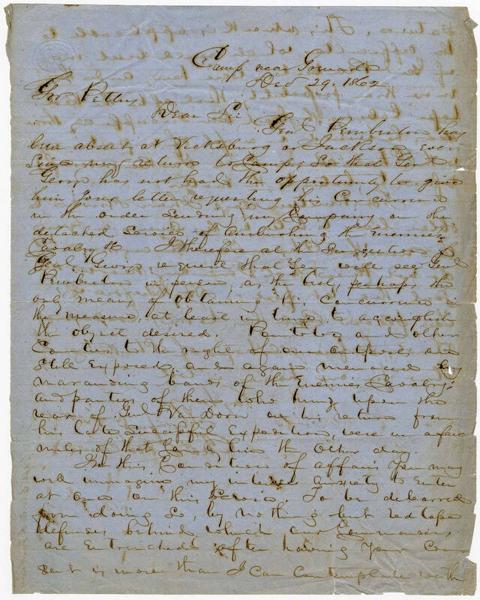 Camp near Grenada
Dec 29. 1862
Gov Pettus
Dear Sir
Genl Pemberton has
been absent at Vicksburg or Jackson ever
since my return to Camp, so that Genl
has not had the opportunity to give
him your letter requesting his Concurrence
in the order sending my Company on the
detached service of ambushing the enemies
Cavalry. I therefore at the
Genl request that you will see Genl
Pemberton in person, as the best, perhaps the
only means of obtaining his concurrence in
the measure, at least in time to accomplish
the object desired. and other
Counties to the right of our outposts are
still exposed, and again menaced by
marauding bands of the Enemies Cavalry
and parties of them who hung upon the
rear of Genl Van Dorn on his return from
his late successful Expedition, were in a few
miles of that the other day.
In this Condition of affairs you may
well imagine my intense anxiety to enter
at once on this service. To be debarred
from doing so, by nothing but red tape
defenses behind which our
are entrenched after having your Con
sent is more than I can contemplate with